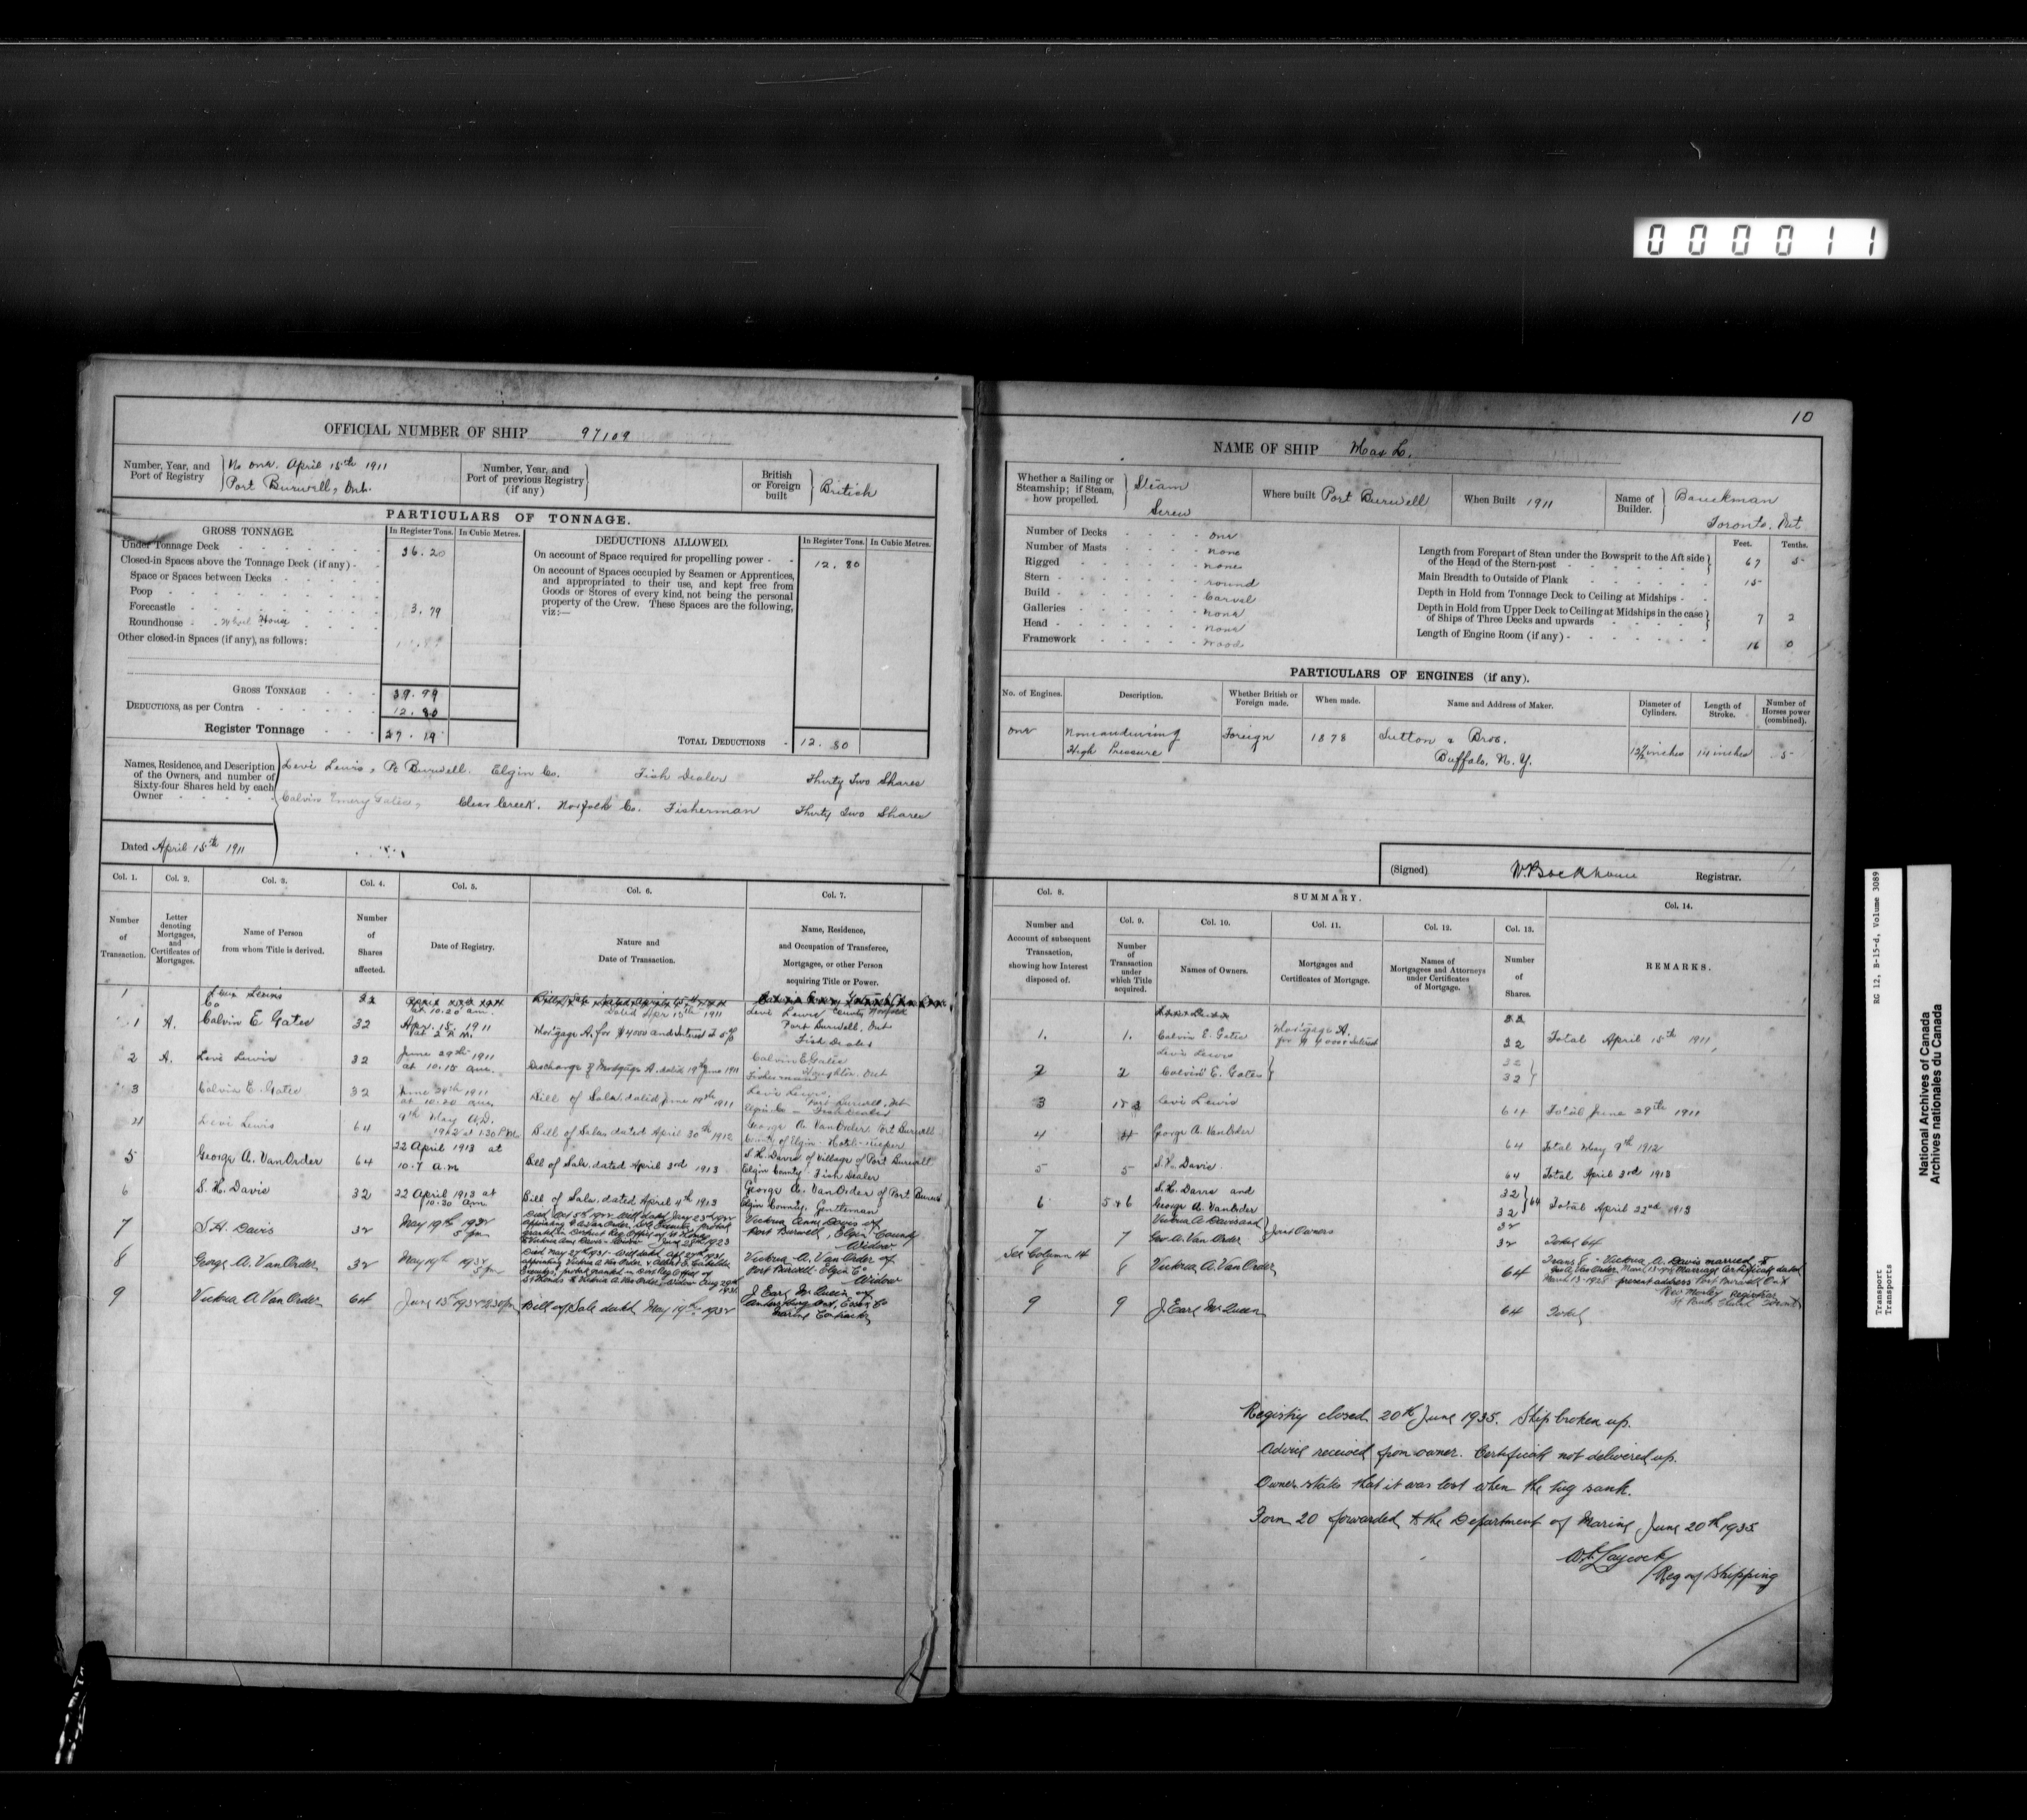 000011
10
OFFICIAL NUMBER OF SHIP 97109
Number, Year, and Port of Registry
No one. April 15th 1911
Port Burwell, Ont.
Number, Year, and Port of previous Registry (if any)
British or Foreign built
British
PARTICULARS OF TONNAGE.
GROSS TONNAGE.
In Register Tons.
In Cubic Metres.
Under Tonnage Deck 36.20
Closed-in Spaces above the Tonnage Deck (if any)
Space or Spaces between Decks
Poop
Forecastle 3.79
Roundhouse Wheel House
Other closed-in Spaces (if any), as follows:
GROSS TONNAGE 39.99
DEDUCTIONS, as per Contra 12.80
Register Tonnage 27.19
DEDUCTIONS ALLOWED.
In Register Tons.
In Cubic Metres.
On account of Space required for propelling power 12.80
On account of Spaces occupied by Seamen or Apprentices,
and appropriated to their use, and kept free from
Goods or Stores of every kind, not being the personal
property of the Crew. These Spaces are the following,
viz:—
TOTAL DEDUCTIONS 12.80
Names, Residence, and Description
of the Owners, and number of
Sixty-four Shares held by each
Owner
Levi Lewis, Pt Burwell. Elgin Co. Fish Dealer Thirty Two Shares
Calvin Emery Gates, Clear Creek. Norfolk Co. Fisherman Thirty Two Shares
Dated April 15th 1911
NAME OF SHIP
Whether a Sailing or Steamship; if Steam, how propelled.
Steam Screw
Where built Port Burwell
When Built 1911
Name of Builder.
Toronto. Ont
Number of Decks one
Number of Masts none
Rigged none
Stern round
Build Carvel
Galleries none
Head none
Framework wood
Feet.
Tenths.
Length from Forepart of Stem under the Bowsprit to the Aft side of the Head of the Stern-post 67 5
Main Breadth to Outside of Plank 15
Depth in Hold from Tonnage Deck to Ceiling at Midships
Depth in Hold from Upper Deck to Ceiling at Midships in the case of Ships of Three Decks and upwards 7 2
Length of Engine Room (if any) 16 0
PARTICULARS OF ENGINES (if any).
No. of Engines.
Description.
Whether British or Foreign made.
When made.
Name and Address of Maker.
Diameter of Cylinders.
Length of Stroke.
Number of Horses power (combined).
one
High Pressure
Foreign
1878
Sutton & Bros.
Buffalo, N.Y.
14 inches
5
(Signed) W. Backhouse Registrar.
Col. 1.
Number of Transaction.
Col. 2.
Letter denoting Mortgages, and Certificates of Mortgages.
Col. 3.
Name of Person from whom Title is derived.
Col. 4.
Number of Shares affected.
Col. 5.
Date of Registry.
Col. 6.
Nature and Date of Transaction.
Col. 7.
Name, Residence, and Occupation of Transferee, Mortgages, or other Person acquiring Title or Power.
1 Levi Lewis 32
1 A. Calvin E Gates 32 Apr. 15. 1911 Mortgage A. for $4000 and Interest @ 5% Levi Lewis Port Burwell, Ont Fish Dealer
2 A. Levi Lewis 32 June 29th 1911 at 10.15 am. Discharge of Mortgage A. dated 19th June 1911 Calvin E Gates Houghton Ont Fisherman
3 Calvin E. Gates 32 June 29th 1911 at 10.20 am. Bill of Sale, dated June 19th 1911 Levi Lewis, Port Burwell, Ont Elgin Co - Fish Dealer
4 Levi Lewis 64 9th May A.D. 1912 at 1.30 P.M. Bill of Sale dated April 30th 1912 George A. VanOrder, Port Burwell County of Elgin - Hotel-Keeper
5 George A. VanOrder 64 22 April 1913 at 10.7 a.m Bill of Sale, dated April 3rd 1913 S. H. Davis of Village of Port Burwell Elgin County - Fish Dealer
6 S. H. Davis 32 22 April 1913 at 10.30 am. Bill of Sale, dated April 4th 1913 George A. VanOrder of Port Burwell Elgin County, Gentleman
7 S. H. Davis 32 May 19th 1932 5 pm Victoria Anne Davis of Port Burwell, Elgin County Widow
8 George A. Van Order 32 May 19th 1932 5 pm Victoria A. Van Order of Port Burwell Elgin Co Widow
9 Victoria A Van Order 64 June 13th 1932 Bill of Sale dated May 19th 1932 J Earl McQueen of Amherstburg Ont, Essex Co Marine Contractor
SUMMARY.
Col. 8.
Number and Account of subsequent Transaction, showing how Interest disposed of.
Col. 9.
Number of Transaction under which Title acquired.
Col. 10.
Names of Owners.
Col. 11.
Mortgages and Certificates of Mortgage.
Col. 12.
Names of Mortgagees and Attorneys under Certificates of Mortgage.
Col. 13.
Number of Shares.
Col. 14.
REMARKS.
1. 1. Calvin E. Gates Mortgage A. 32 Total April 15th 1911
2 2 Levi Lewis Calvin E. Gates 32 32
3 Levi Lewis 64 Total June 29th 1911
4 4 George A. VanOrder 64 Total May 9th 1912
5 5 S. H. Davis 64 Total April 3rd 1913
6 5 & 6 S. H. Davis and George A. VanOrder 32 32 64 Total April 22nd 1913
7 7 Victoria A Davis and Geo A. Van Order Joint Owners 32 32 Total 64
See Column 14
8 8 Victoria A. Van Order 64
9 9 J Earl McQueen 64 Total
Registry closed 20th June 1935. Ship broken up.
Advice received from owner. Certificate not delivered up.
Owner states that it was lost when the tug sank.
Form 20 forwarded to the Department of Marine June 20th 1935
Reg of Shipping
RG 12, B-15-d, Volume 3089
Transport
Transports
National Archives of Canada
Archives nationales du Canada